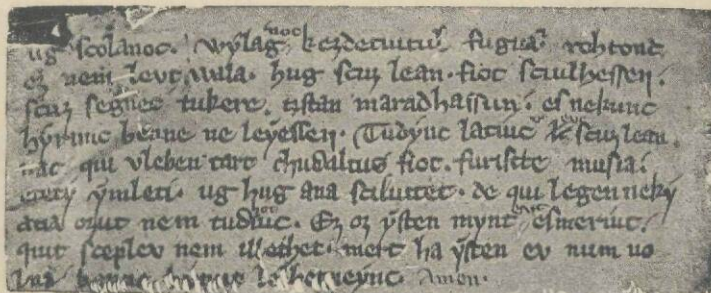 ug scolanoc. wylag noc kezdetuitul fugua rohtonc
ez nem levt wala. hug scuz lean. fiot sciulhessen.
scuz segnec tukere. tistan maradhassun. es nekunc
hyrunc benne ne leyessen. Tudyuc latiuc evt scuz lean
nac qui vleben tart chudaltus fiot. furiscte musia.
etety ymleti. ug hug ana sciluttet. de qui legen neky
atia ozut nem tudhotiuc. Ez oz ysten mynt evt esmeriuc.
quit sceplev nem illethet. mert ha ysten ev num uo
lna benne bynut lelhetneync. Amen.